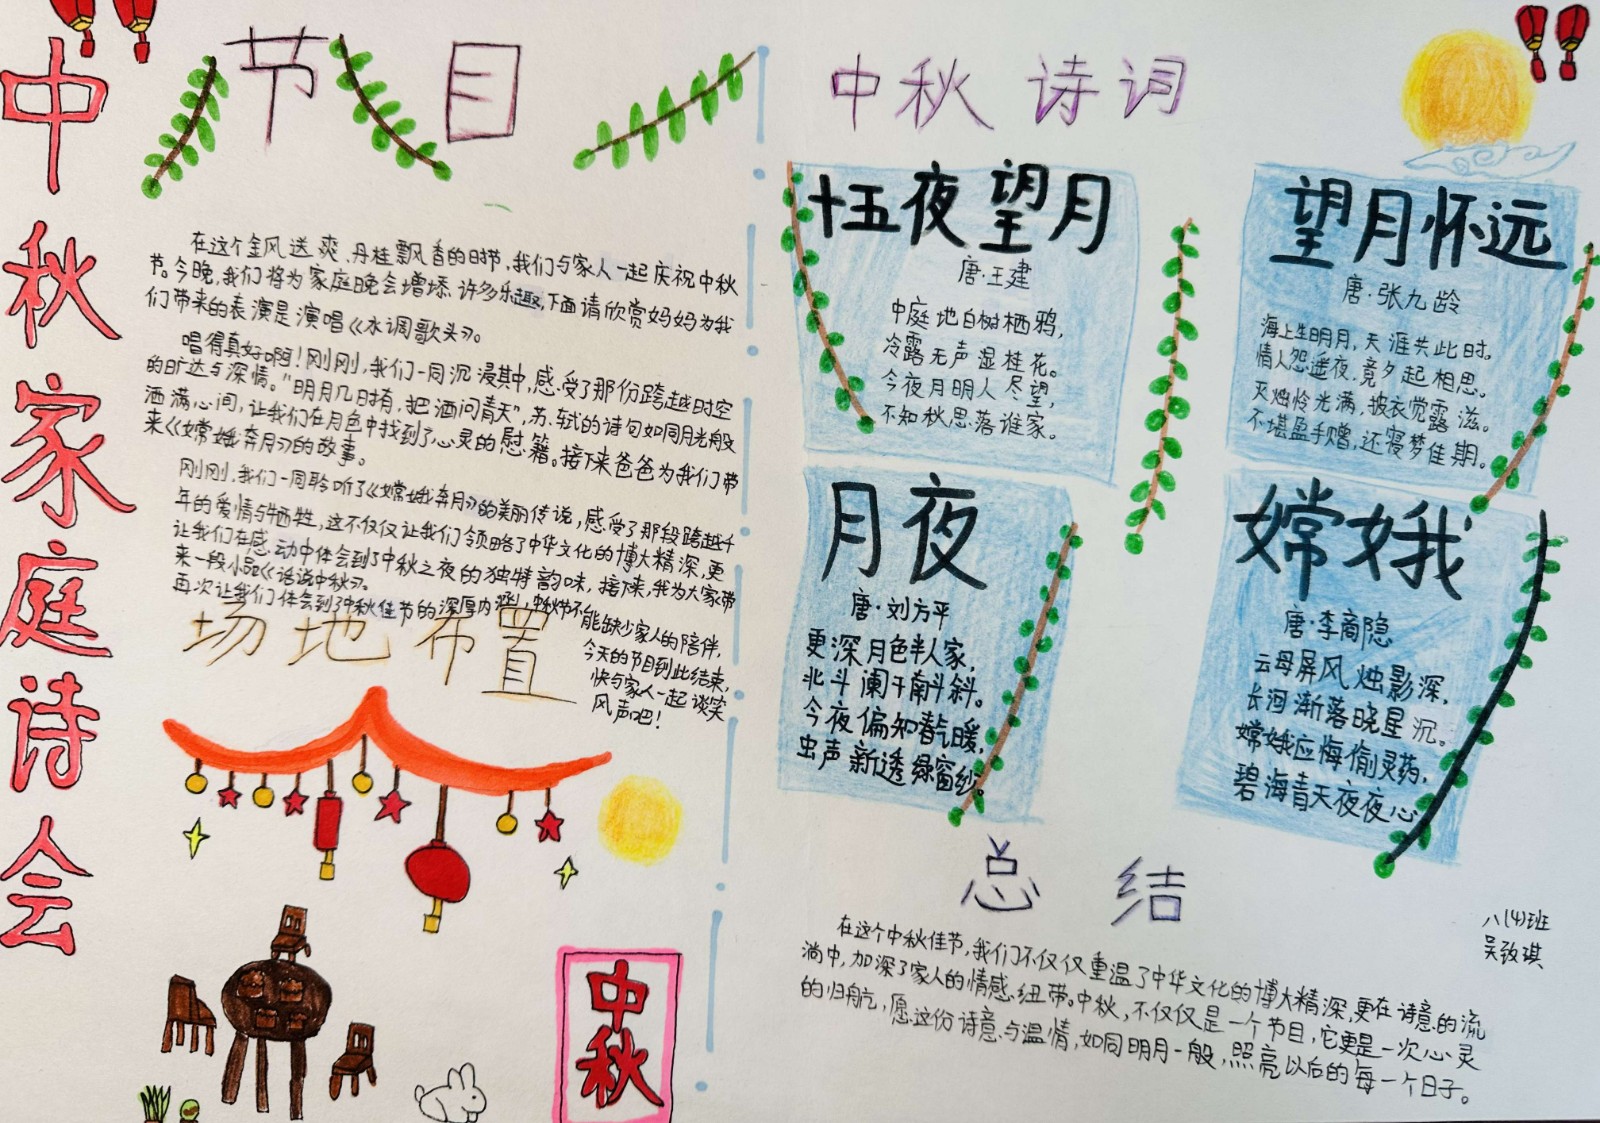 中秋家庭诗会
节目
在这个金风送爽、丹桂飘香的时节,我们与家人一起庆祝中秋
节。今晚,我们将为家庭晚会增添许多乐趣,下面请欣赏妈妈为我
们带来的表演是演唱《水调歌头》。
唱得真好啊!刚刚,我们一同沉浸其中,感受了那份跨越时空
的旷达与深情。"明月几时有,把酒问青天",苏轼的诗句如同月光般
洒满心间,让我们在月色中找到了心灵的慰籍。接下来爸爸为我们带
来《嫦娥奔月》的故事。
刚刚,我们一同聆听了《嫦娥奔月》的美丽传说,感受了那段跨越千
年的爱情与牺牲,这不仅仅让我们领略了中华文化的博大精深,更
让我们在感动中体会到了中秋之夜的独特韵味,接下来,我为大家带
来一段小品《话说中秋》。
再次让我们体会到了中秋佳节的深厚内涵!中秋节不能缺少家人的陪伴,
今天的节目到此结束,
快与家人一起谈笑
风声吧!
场地布置
中秋
中秋诗词
十五夜望月
唐·王建
中庭地白树栖鸦,
冷露无声湿桂花。
今夜月明人尽望,
不知秋思落谁家。
望月怀远
唐·张九龄
海上生明月,天涯共此时。
情人怨遥夜,竟夕起相思。
灭烛怜光满,披衣觉露滋。
不堪盈手赠,还寝梦佳期。
月夜
唐·刘方平
更深月色半人家,
北斗阑干南斗斜。
今夜偏知春气暖,
虫声新透绿窗纱。
嫦娥
唐·李商隐
云母屏风烛影深,
长河渐落晓星沉。
嫦娥应悔偷灵药,
碧海青天夜夜心
总结
在这个中秋佳节,我们不仅仅重温了中华文化的博大精深,更在诗意的流
淌中,加深了家人的情感纽带。中秋,不仅仅是一个节目,它更是一次心灵
的归航,愿这份诗意与温情,如同明月一般,照亮以后的每一个日子。
八(4)班
吴致琪